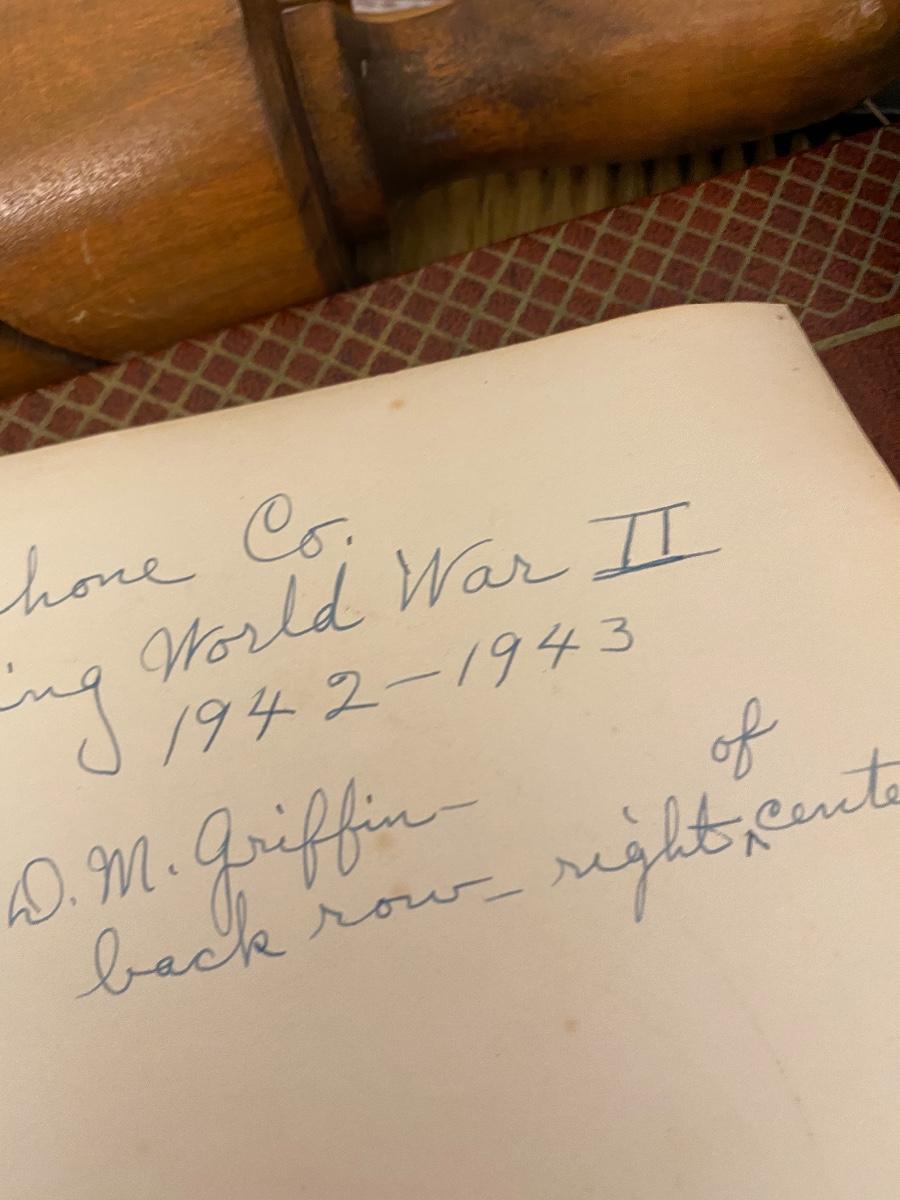 hone Co.
ing World War II
1942-1943
D.M. Griffin-
of
back row - right ^ cente